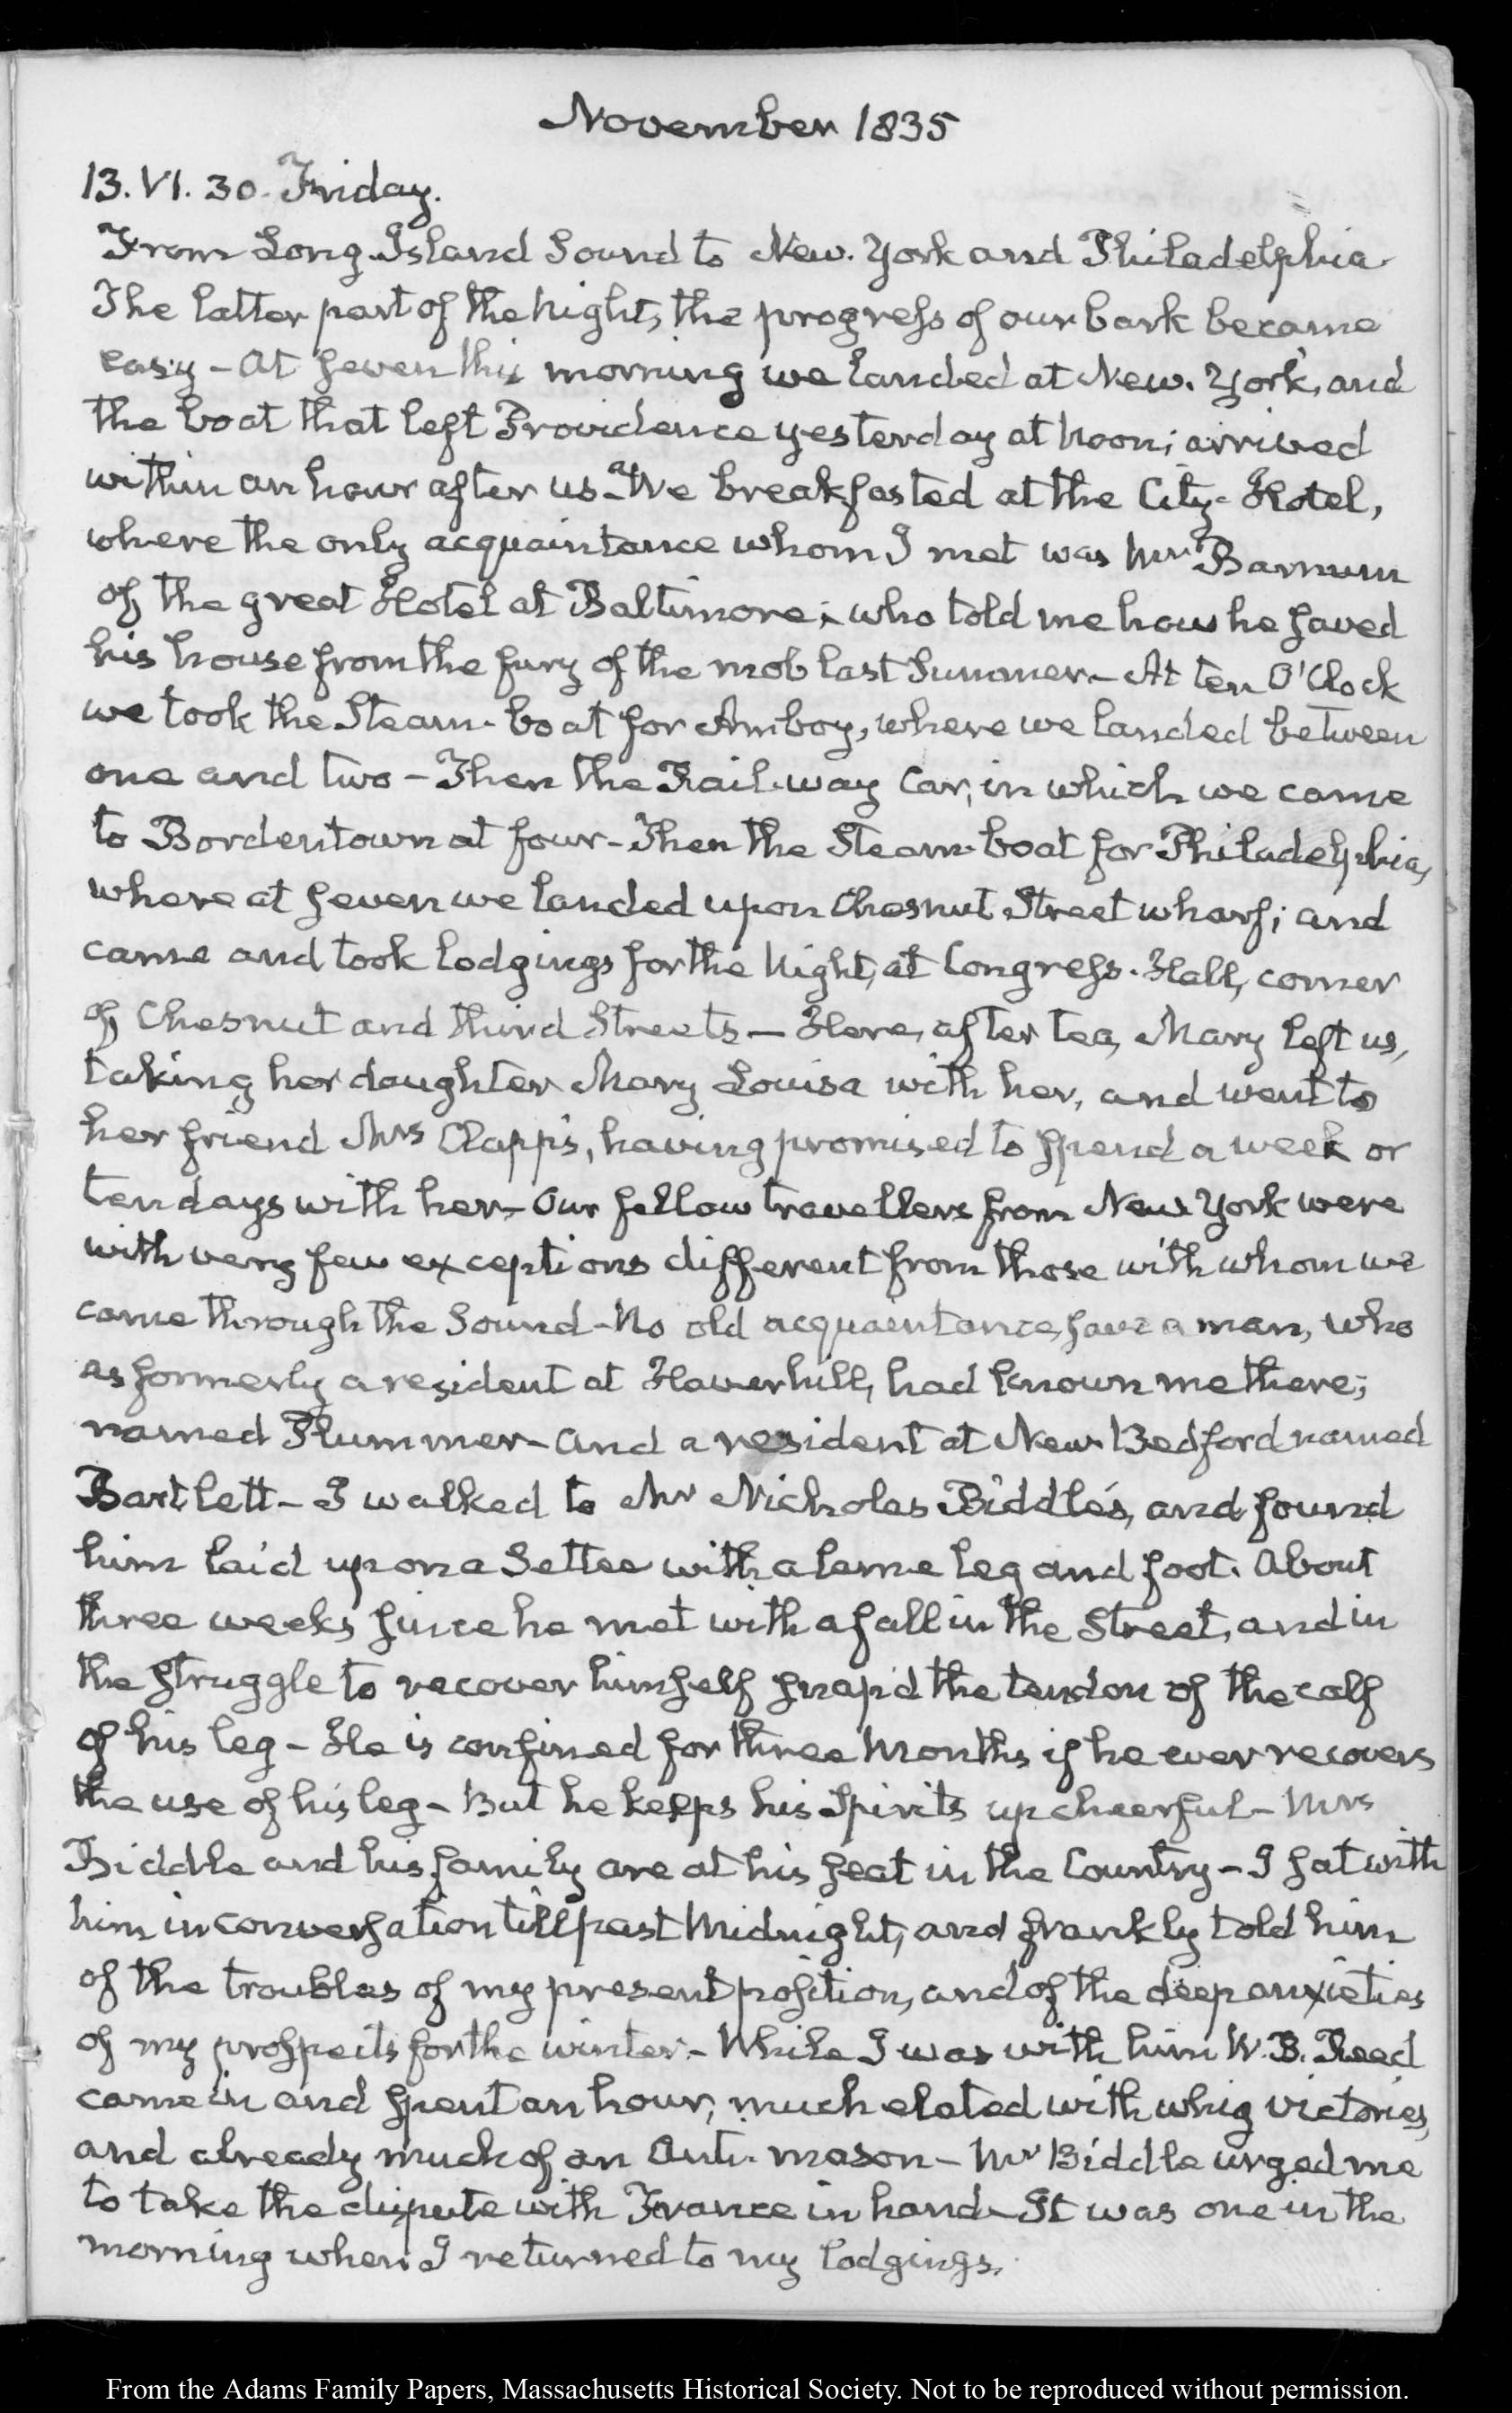 November 1835
13. VI. 30. Friday.
From Long-Island Sound to New-York and Philadelphia.
The latter part of the Night, the progress of our bark became
easy - At seven this morning we landed at New-York, and
the boat that left Providence yesterday at Noon; arrived
within an hour after us - We breakfasted at the City-Hotel,
where the only acquaintance whom I met was Mr Barnum
of the great Hotel at Baltimore; who told me how he saved
his house from the fury of the mob last Summer - At ten O'Clock
we took the Steam-boat for Amboy, where we landed between
one and two - Then the Rail-way Car, in which we came
to Bordentown at four - Then the Steam-boat for Philadelphia,
where at seven we landed upon Chesnut Street wharf; and
came and took lodgings for the Night, at Congress-Hall, corner
of Chesnut and third Streets - Here, after tea, Mary left us,
taking her daughter Mary Louisa with her, and went to
her friend Mrs Clapp's, having promised to spend a week or
ten days with her - Our fellow travellers from New York were
with very few exceptions different from those with whom we
came through the Sound - No old acquaintance, save a man, who
as formerly a resident at Haverhill, had known me there;
named Plummer - and a resident at New-Bedford named
Bartlett - I walked to Mr Nicholas Biddle's, and found
him laid up on a Settee with a lame leg and foot. About
three weeks since he met with a fall in the Street, and in
the struggle to recover himself snap'd the tendon of the calf
of his leg - He is confined for three Months if he ever recovers
the use of his leg - But he keeps his Spirits up cheerful - Mrs
Biddle and his family are at his seat in the Country - I sat with
him in conversation till past Midnight, and frankly told him
of the troubles of my present position, and of the deep anxieties
of my prospects for the winter - While I was with him W. B. Reed
came in and spent an hour; much elated with whig victories,
and already much of an Anti-mason - Mr Biddle urged me
to take the dispute with France in hand - It was one in the
morning when I returned to my lodgings.
From the Adams Family Papers, Massachusetts Historical Society. Not to be reproduced without permission.